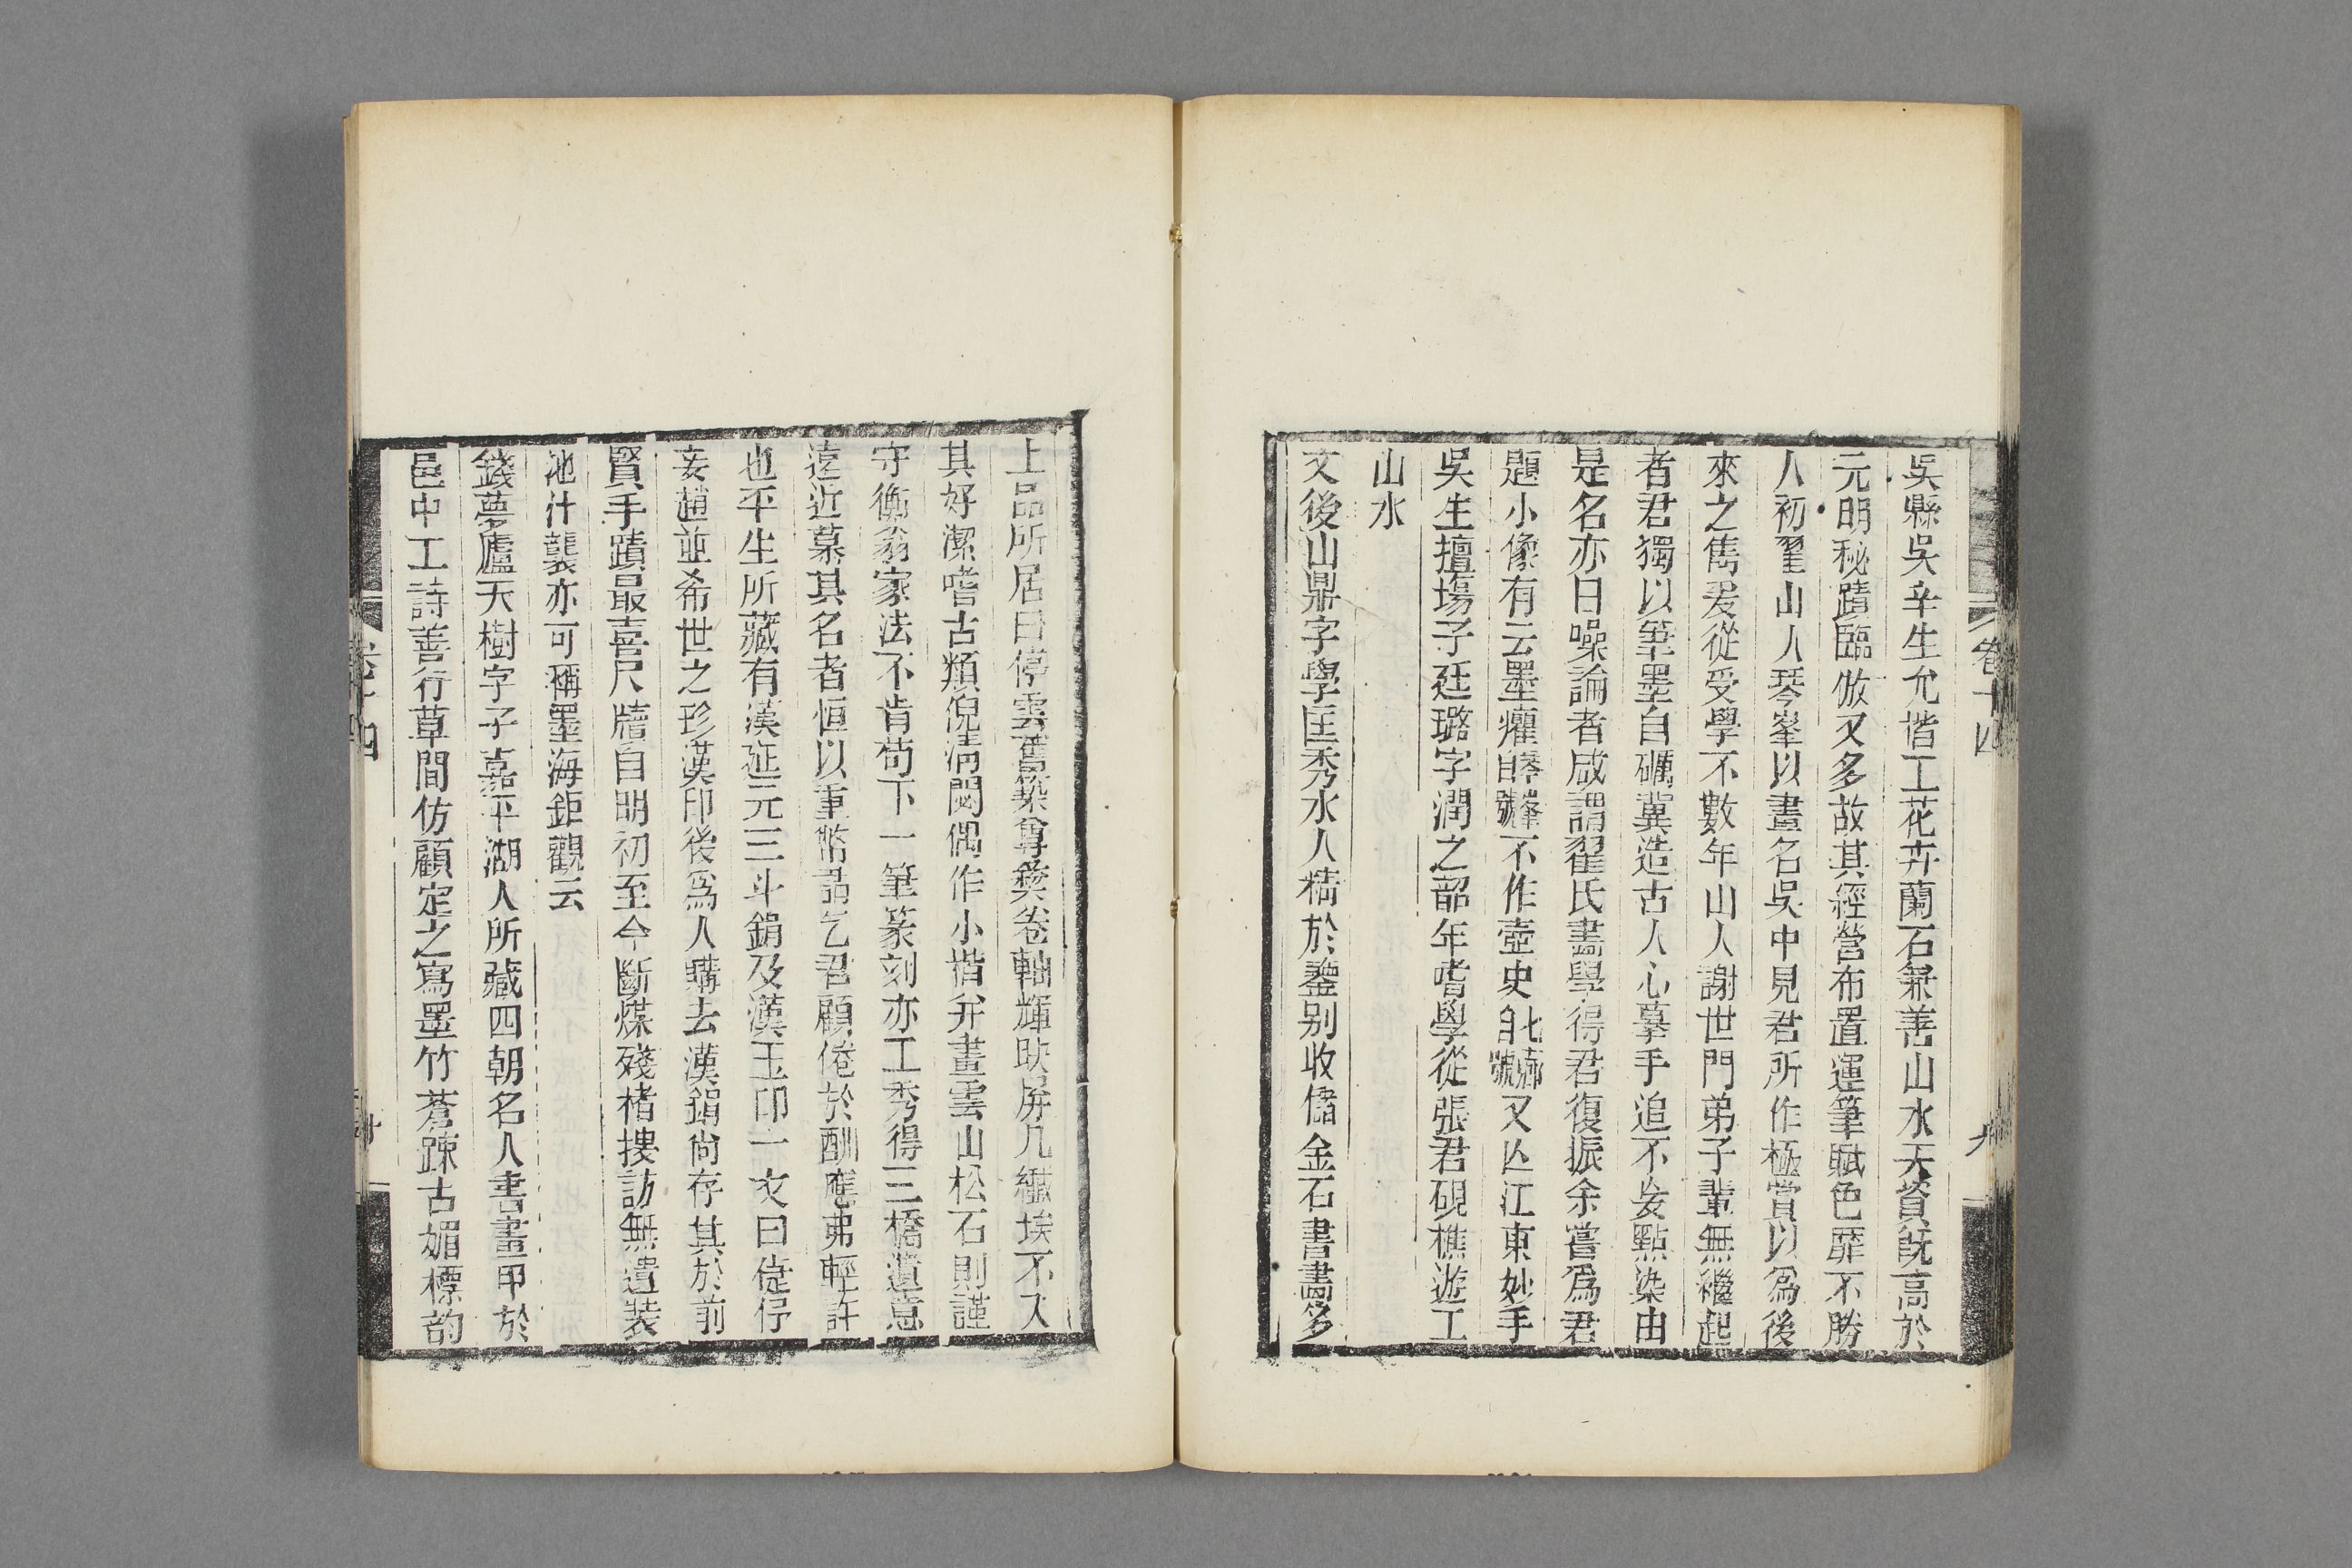 吳縣吳辛生允楷工花卉蘭石兼善山水天資旣高於
元明秘蹟臨倣又多故其經營布置運筆賦色靡不勝
人初翟山人琴峯以畫名吳中見君所作極賞以爲後
來之雋爰從受學不數年山人謝世門弟子輩無繼起
者君獨以筆墨自礪冀造古人心摹手追不妄點染由
是名亦日噪論者咸謂翟氏畵學得君復振余嘗爲君
題小像有云墨癯琴峯自號不作壺史北廊自號又亾江東妙手
吳生擅塲子廷璐字潤之韶年嗜學從張君硯樵遊工
山水
文後山鼎字學匡秀水人精於鑒别收儲金石書畵多
卷十四
九
上品所居曰停雲舊築尊彜卷軸輝映屏几纎埃不入
其好潔嗜古類倪淸閟偶作小楷并畫雲山松石則謹
守衡翁家法不肯苟下一筆篆刻亦工秀得三橋遺意
遠近慕其名者恒以重幣品乞君顧倦於酬應弗輕許
也平生所藏有漢延元三斗鋗及漢玉印一文曰倢伃
妾趙並希世之珍漢印後爲人購去漢鋗尙存其於前
賢手蹟最喜尺牘自明初至今斷煤殘楮搜訪無遺裝
池什襲亦可稱墨海鉅觀云
錢夢廬天樹字子嘉平湖人所藏四朝名人書畫甲於
邑中工詩善行草間仿顧定之寫墨竹蒼疎古媚標韵
卷十四